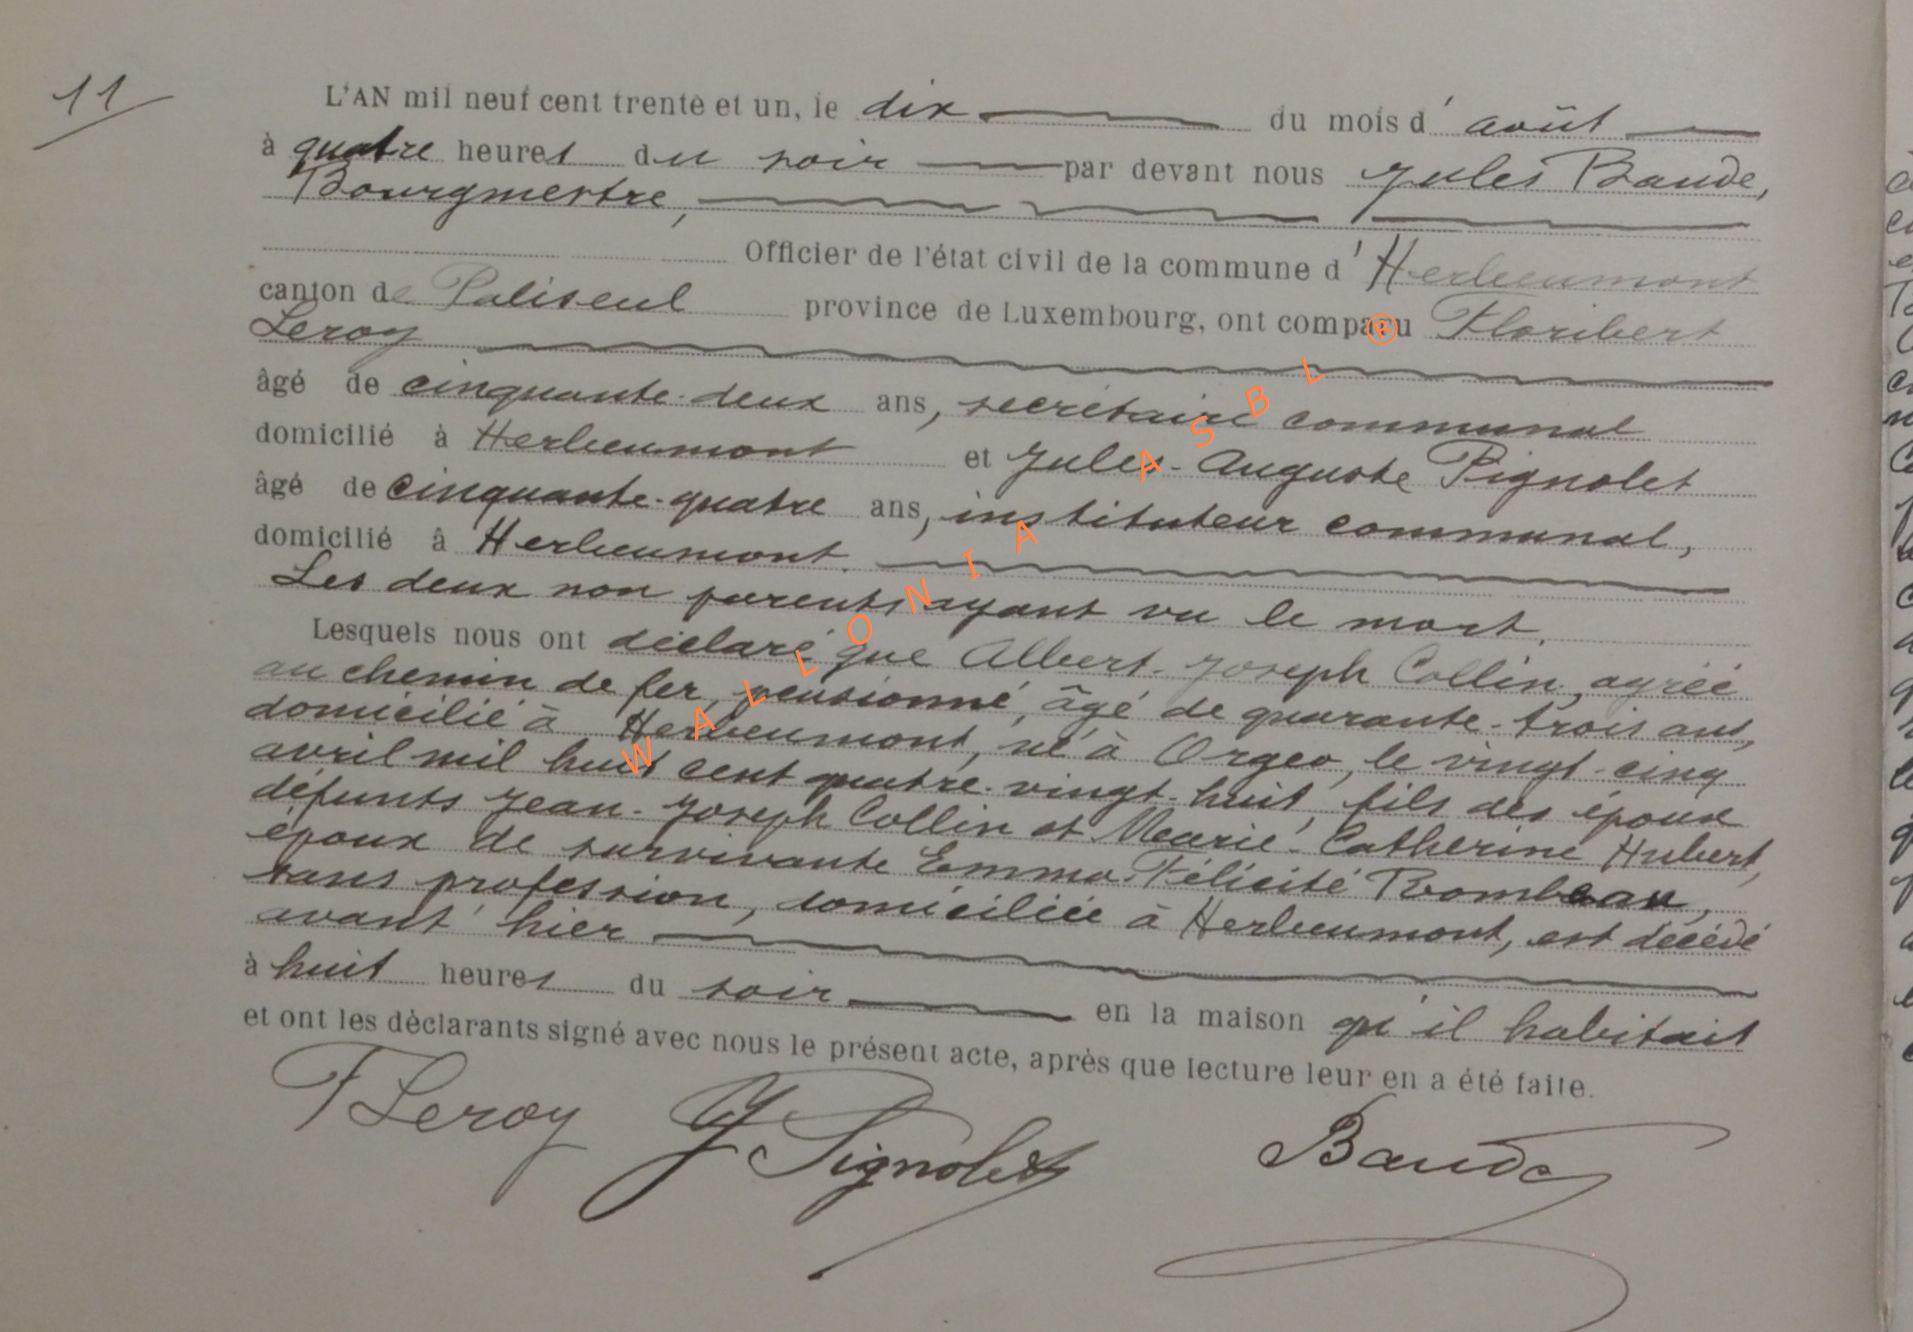 11
L'AN mil neuf cent trente et un, le dix du mois d' août
à quatre heures du soir par devant nous Jules Baude,
Bourgmestre,
Officier de l'état civil de la commune d' Herbeumont
canton de Paliseul province de Luxembourg, ont comparu Floribert
Leroy
âgé de cinquante-deux ans, secrétaire communal
domicilié à Herbeumont et Jules-Auguste Pignolet
âgé de cinquante-quatre ans, instituteur communal,
domicilié à Herbeumont.
Les deux non parents ayant vu le mort.
Lesquels nous ont déclaré que Albert-Joseph Collin, agréé
au chemin de fer, pensionné, âgé de quarante-trois ans,
domicilié à Herbeumont, né à Orgeo, le vingt-cinq
avril mil huit cent quatre-vingt-huit, fils des époux
défunts Jean-Joseph Collin et Marie-Catherine Hubert,
époux de survivante Emma-Félicité Rombeau,
sans profession, domiciliée à Herbeumont, est décédé
avant hier
à huit heures du soir en la maison qu'il habitait
et ont les déclarants signé avec nous le présent acte, après que lecture leur en a été faite.
FLeroy J Pignolet Baude
WALLONIA ASBL ®